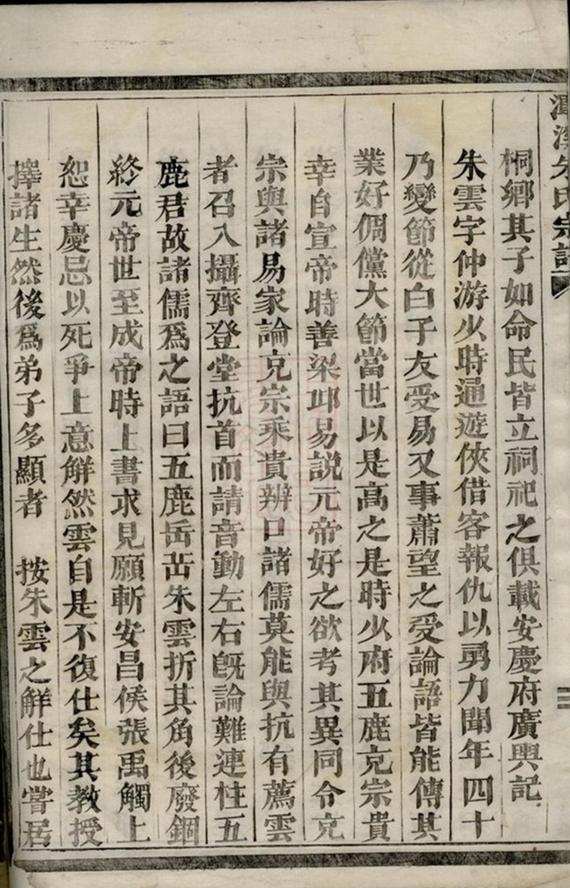 朱氏宗譜
桐鄉其子如命民皆立祠祀之俱載安慶府廣輿記
朱雲字仲游少時通遊俠借客報仇以勇力聞年四十
乃變節從白子友受易又事蕭望之受論語皆能傳其
業好倜儻大節當世以是高之是時少府五鹿充宗貴
幸自宣帝時善梁邱易說元帝好之欲考其異同令充
宗與諸易家論充宗乘貴辨口諸儒莫能與抗有薦雲
者召入攝齊登堂抗首而請音動左右旣論難連柱五
鹿君故諸儒爲之語曰五鹿岳岳朱雲折其角後廢錮
終元帝世至成帝時上書求見願斬安昌侯張禹觸上
恕幸慶忌以死爭上意解然雲自是不復仕矣其教授
擇諸生然後爲弟子多顯者 按朱雲之鮮仕也嘗居